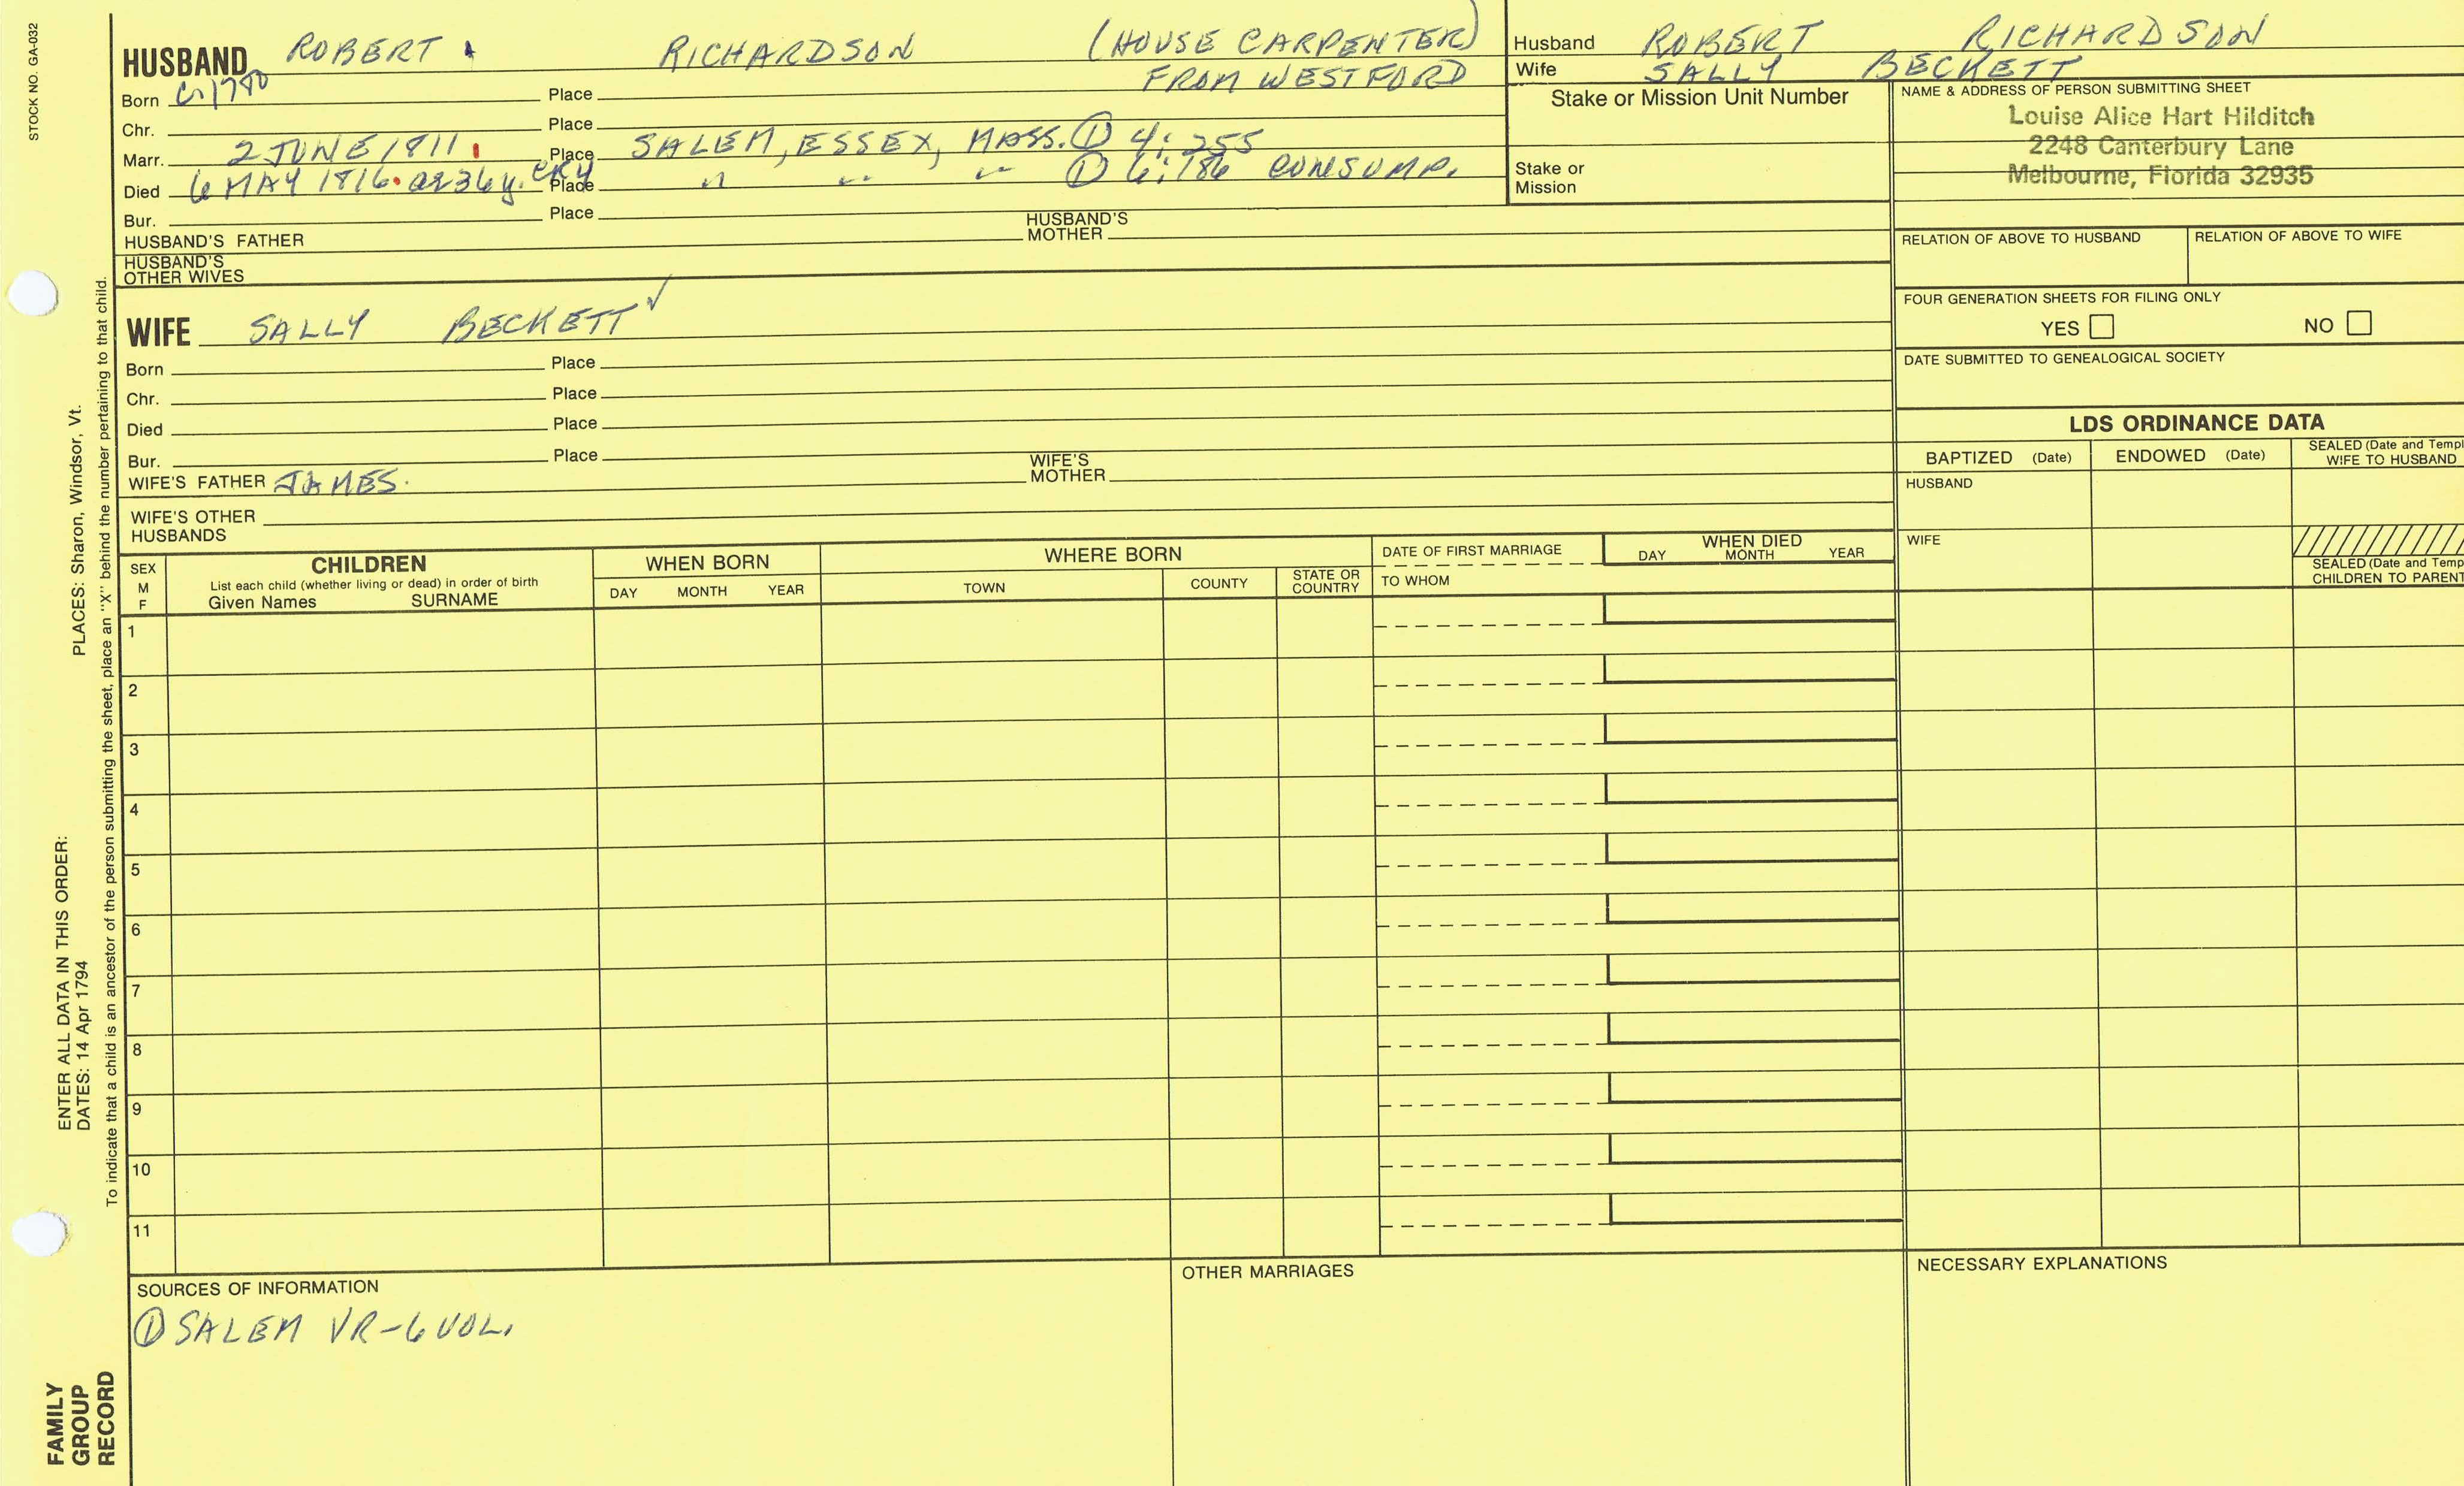 STOCK NO. GA-032
HUSBAND ROBERT RICHARDSON (HOUSE CARPENTER)
FROM WESTFORD
Born C. 1780 Place
Chr. Place
Marr. 2 JUNE 1811. Place SALEM, ESSEX, MASS. ① 4:255
Died 6 MAY 1816. ae 36y. Place " " " ① 6:186 CONSUMP.
Bur. Place
HUSBAND'S FATHER HUSBAND'S MOTHER
HUSBAND'S OTHER WIVES
WIFE SALLY BECKETT ✓
Born Place
Chr. Place
Died Place
Bur. Place
WIFE'S FATHER JAMES. WIFE'S MOTHER
WIFE'S OTHER HUSBANDS
Husband ROBERT RICHARDSON
Wife SALLY BECKETT
Stake or Mission Unit Number
Stake or Mission
NAME & ADDRESS OF PERSON SUBMITTING SHEET
Louise Alice Hart Hilditch
2248 Canterbury Lane
Melbourne, Florida 32935
RELATION OF ABOVE TO HUSBAND RELATION OF ABOVE TO WIFE
FOUR GENERATION SHEETS FOR FILING ONLY
YES NO
DATE SUBMITTED TO GENEALOGICAL SOCIETY
LDS ORDINANCE DATA
BAPTIZED (Date) ENDOWED (Date) SEALED (Date and Templ
WIFE TO HUSBAND
HUSBAND
WIFE
SEALED (Date and Temp
CHILDREN TO PARENT
SEX
M
F
CHILDREN
List each child (whether living or dead) in order of birth
Given Names SURNAME
WHEN BORN
DAY MONTH YEAR
WHERE BORN
TOWN COUNTY STATE OR COUNTRY
DATE OF FIRST MARRIAGE
TO WHOM
WHEN DIED
DAY MONTH YEAR
1
2
3
4
5
6
7
8
9
10
11
SOURCES OF INFORMATION
① SALEM VR-6 VOL.
OTHER MARRIAGES
NECESSARY EXPLANATIONS
ENTER ALL DATA IN THIS ORDER:
DATES: 14 Apr 1794 PLACES: Sharon, Windsor, Vt.
To indicate that a child is an ancestor of the person submitting the sheet, place an "X" behind the number pertaining to that child.
FAMILY
GROUP
RECORD